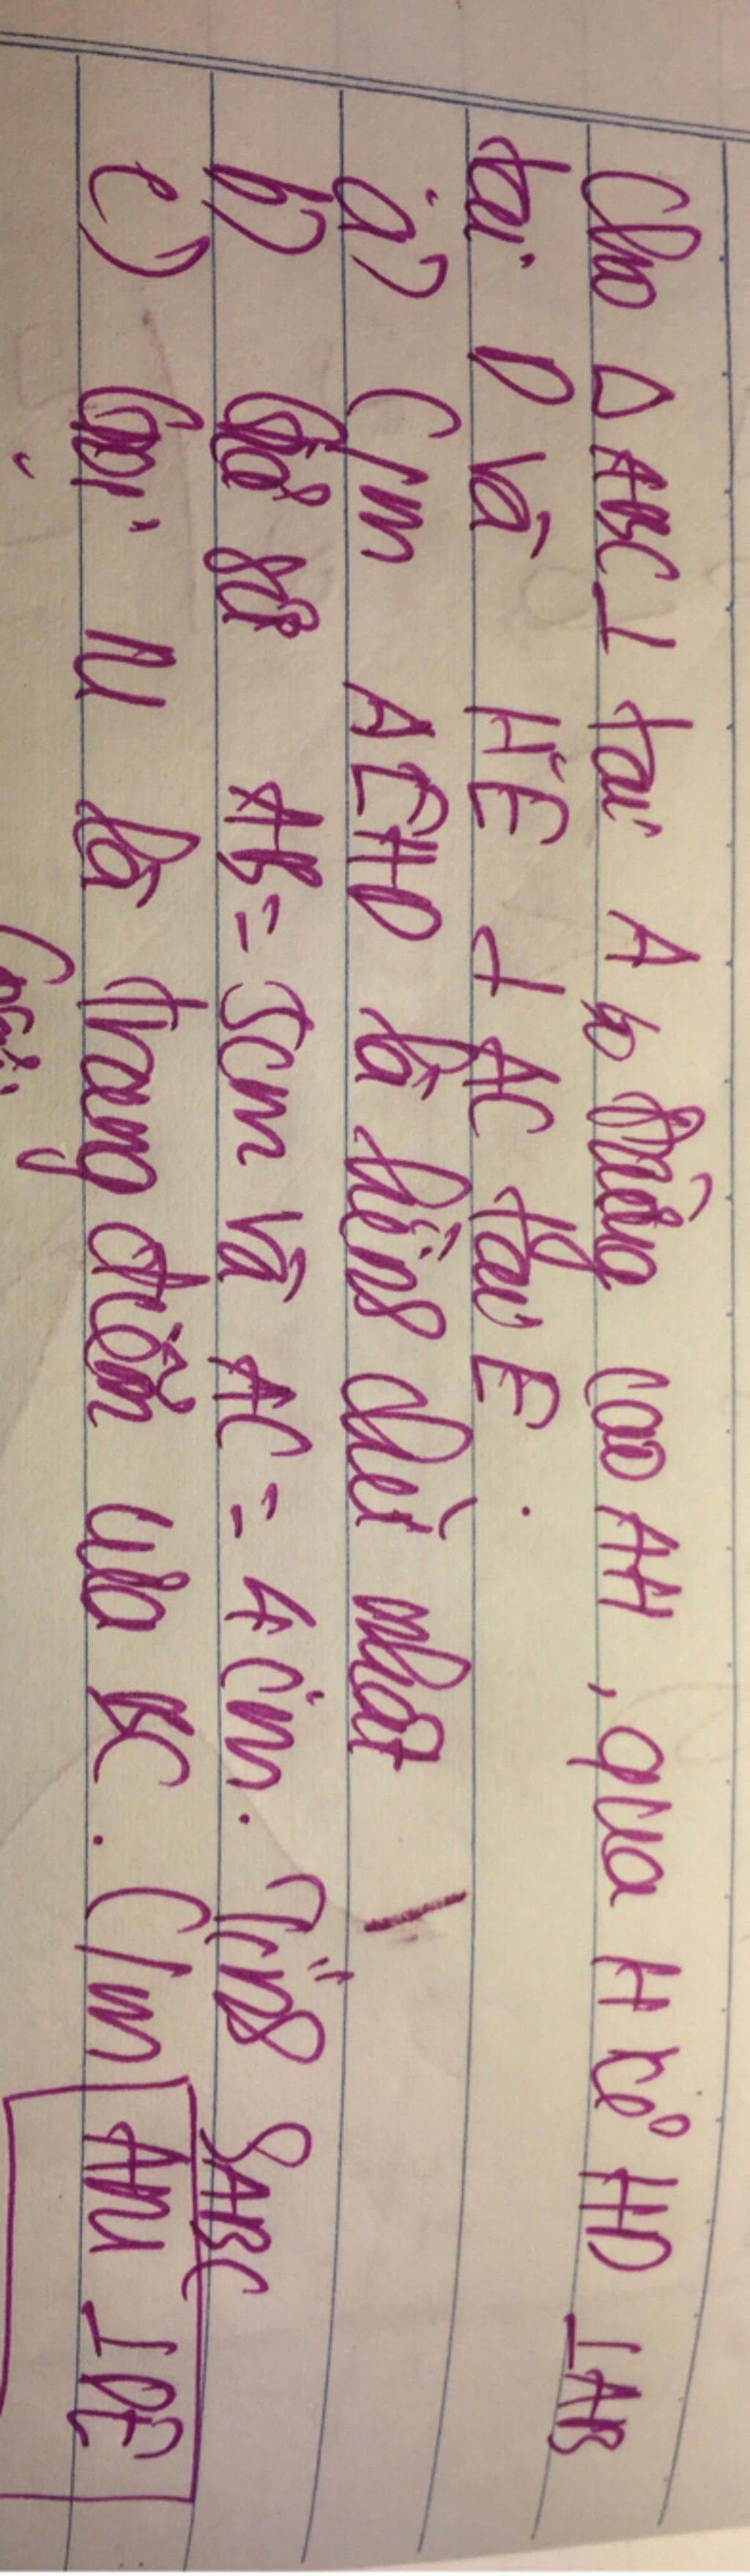 Cho Δ ABC ⊥ tại A có đường cao AH, qua H kẻ HD ⊥ AB
tại D và HE ⊥ AC tại E.
a) C/m AEHD là hình chữ nhật
b) Giả sử AB = 5cm và AC = 4cm. Tính SABC
c) Gọi M là trung điểm của BC. C/m AM ⊥ DE